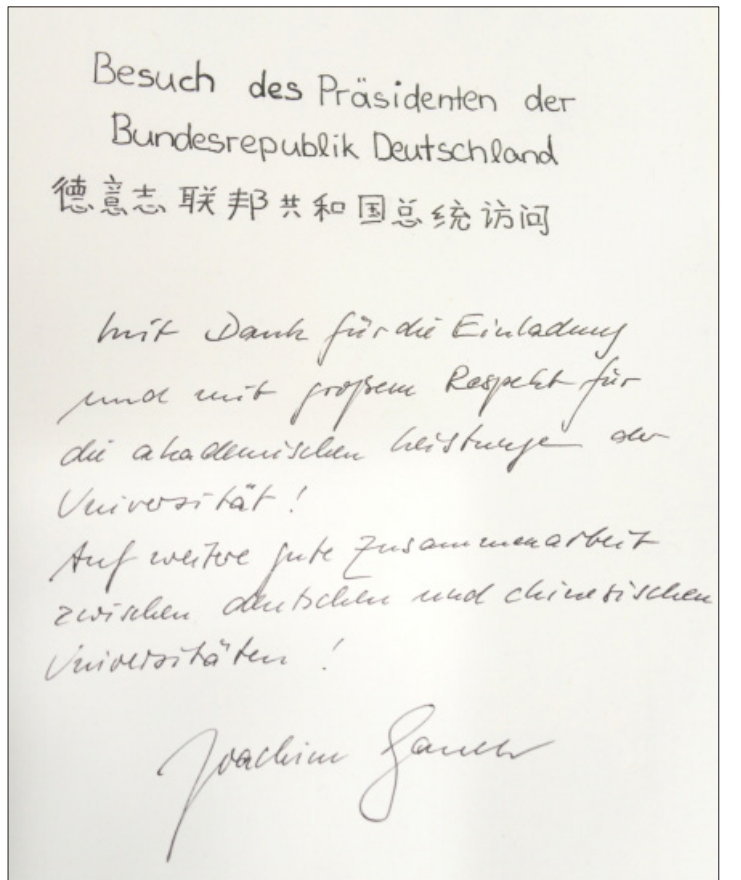 Besuch des Präsidenten der
Bundesrepublik Deutschland
德意志联邦共和国总统访问
Mit Dank für die Einladung
und mit großem Respekt für
die akademischen Leistungen der
Universität!
Auf weitere gute Zusammenarbeit
zwischen deutschen und chinesischen
Universitäten!
Joachim Gauck